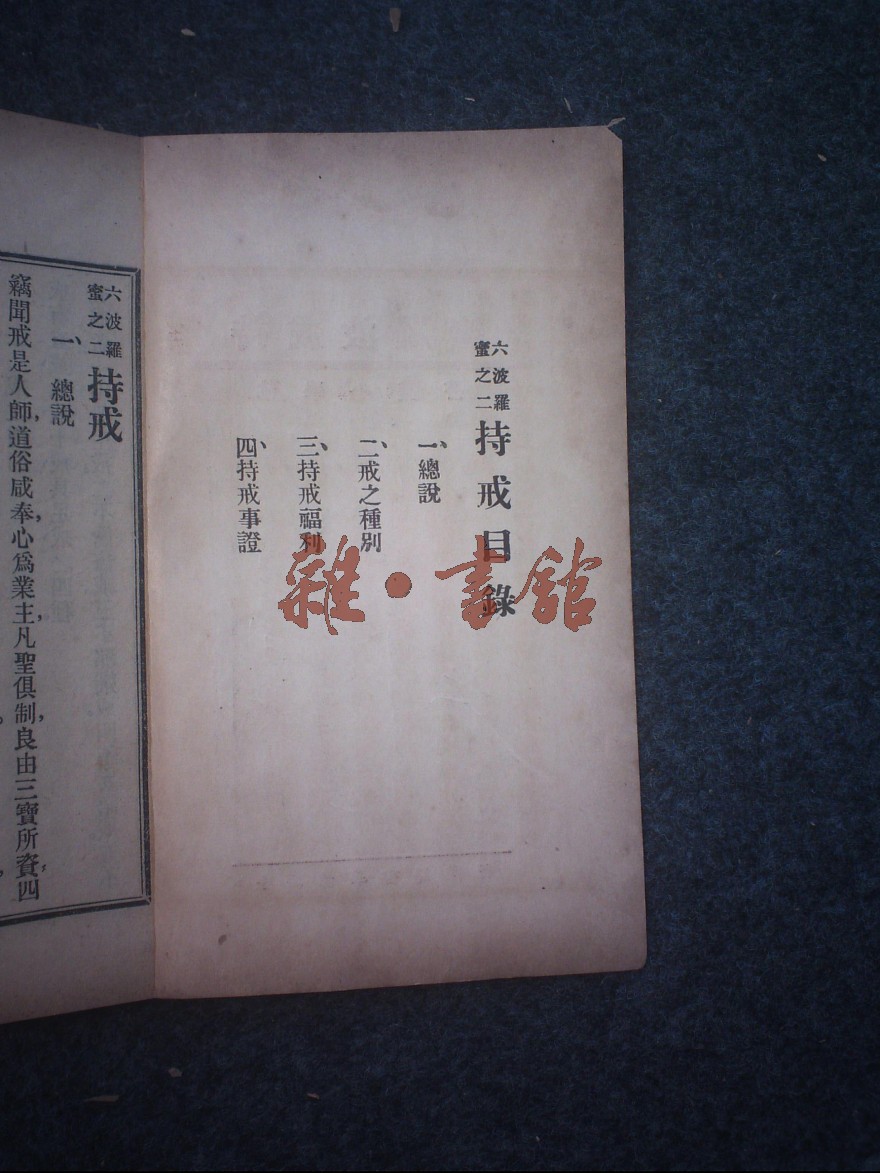 六波羅蜜之二 持戒目錄
一、總說
二、戒之種別
三、持戒福利
四、持戒事證
雜·書館
六波羅蜜之二 持戒
一、總說
竊聞戒是人師，道俗咸奉，心爲業主，凡聖俱制，良由三寶所資，四